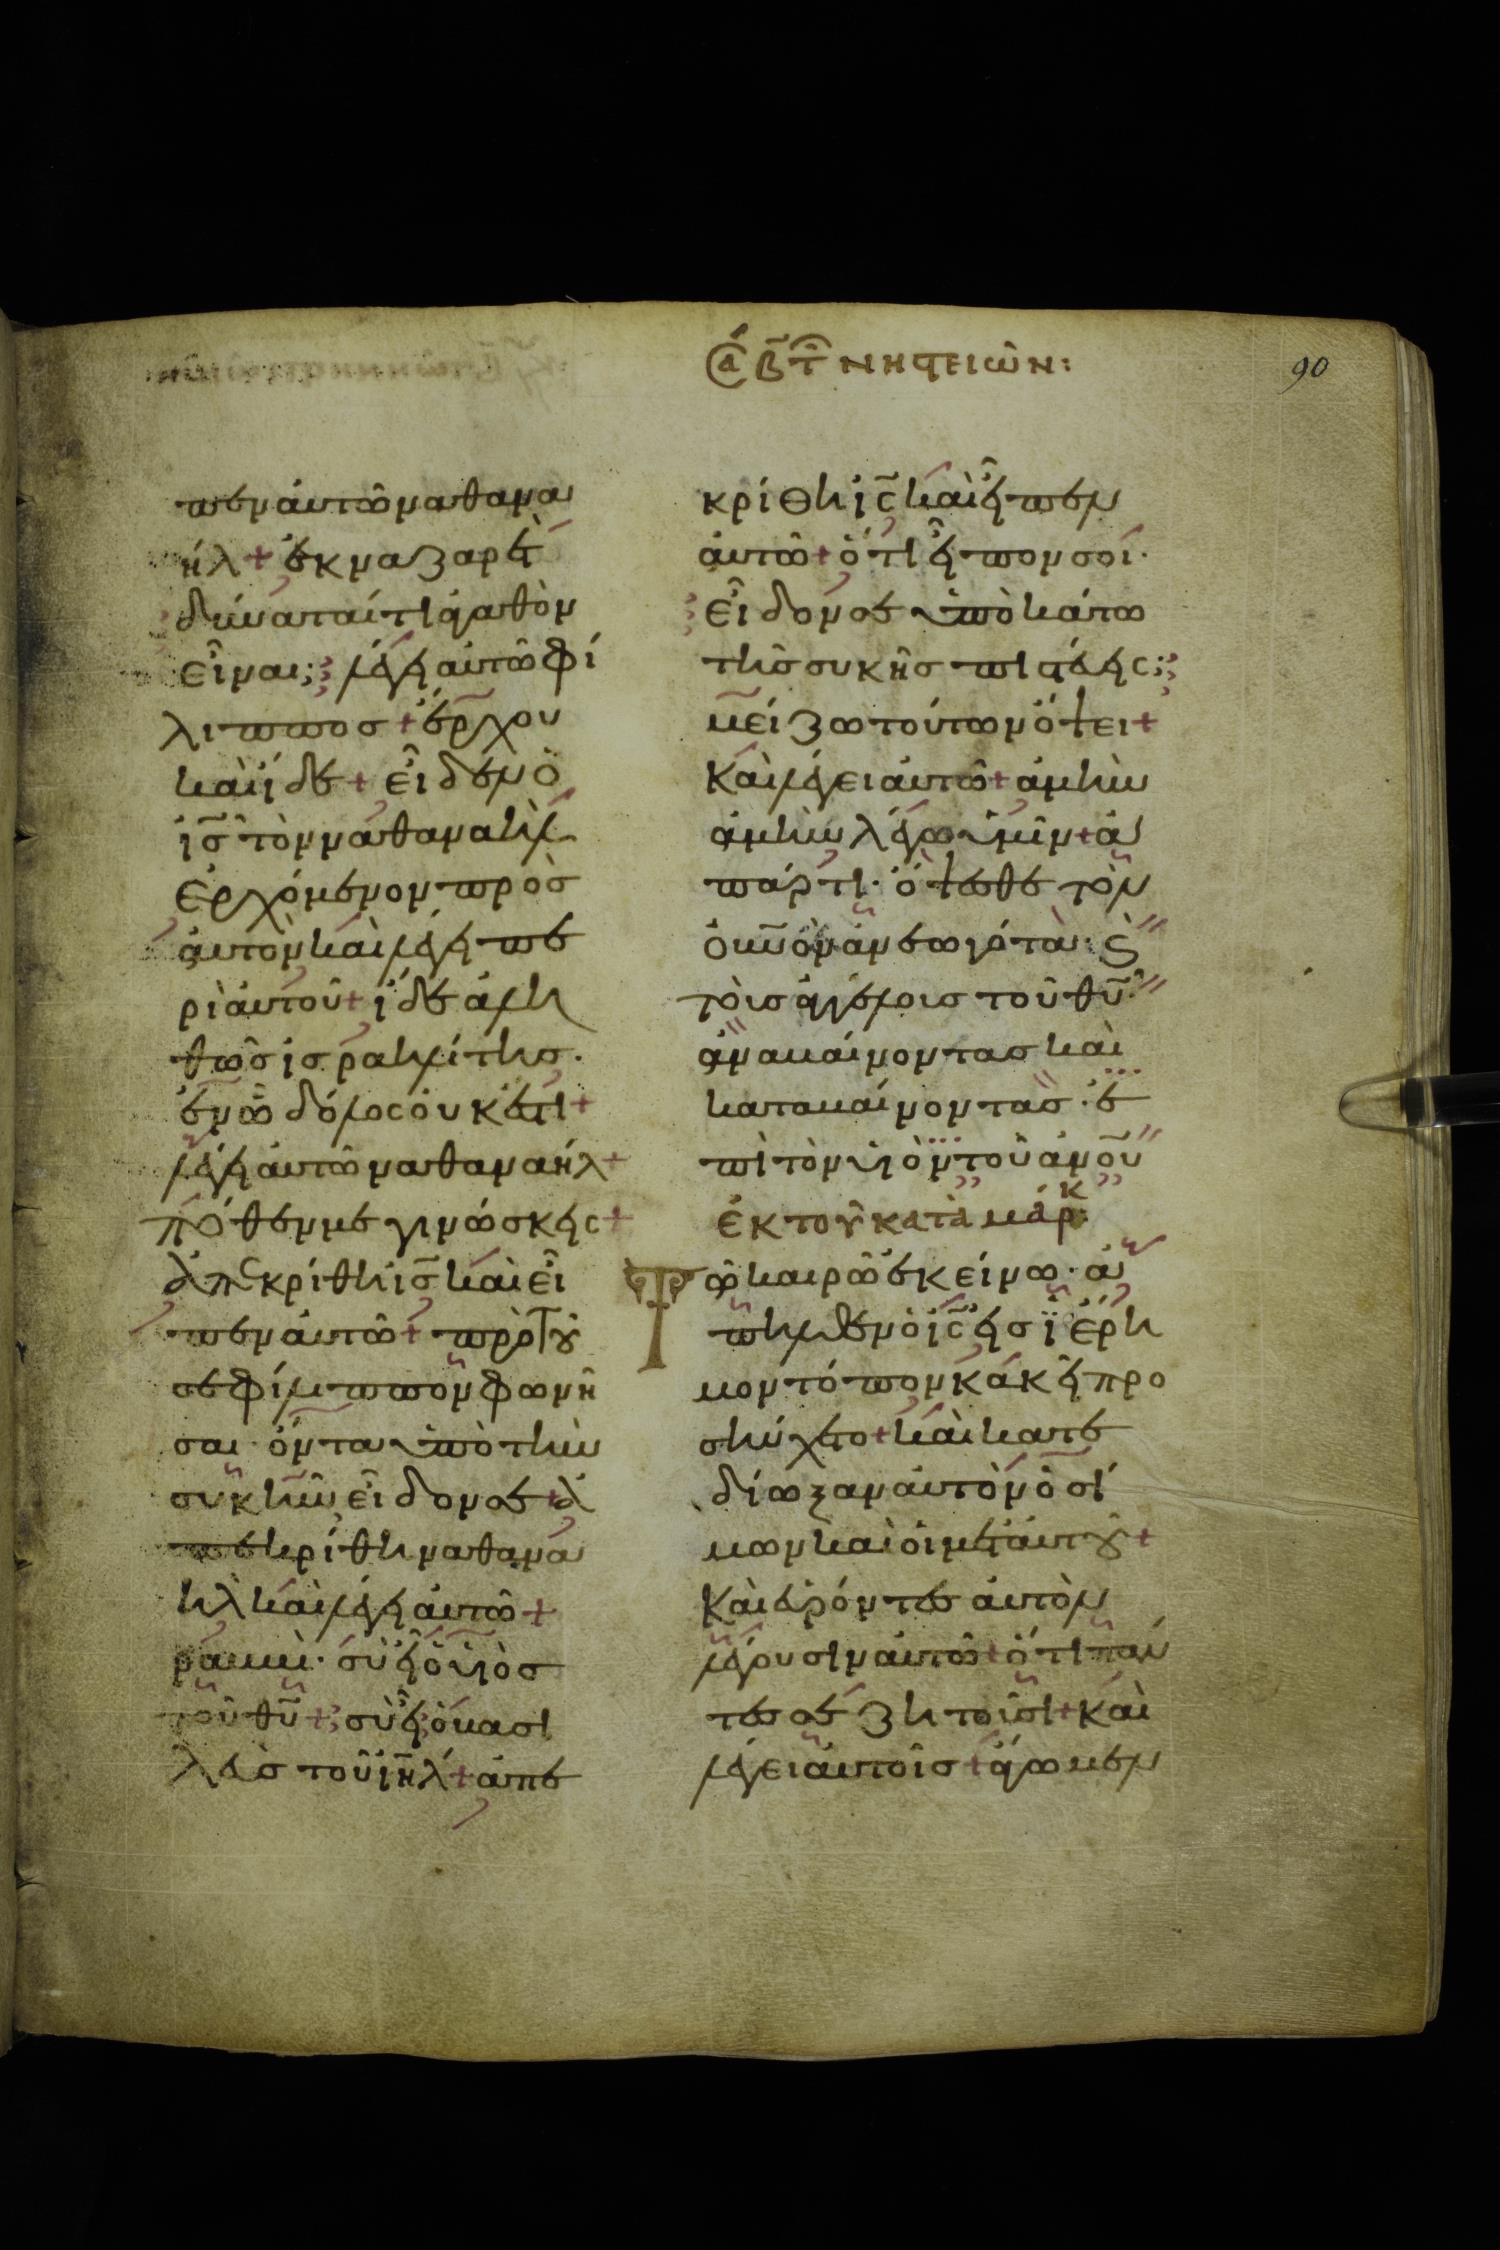 Σα Β τῶν νηστειῶν:
90
πεν αυτῶ ναθανα
ήλ + ἐκ ναζαρὲτ
δύναταί τι ἀγαθὸν
εἶναι; λέγει αὐτῶ φί
λιππος + ἔρχου
καὶ ἴδε + εἶδεν ὁ
ις τὸν ναθαναὴλ
ἐρχόμενον πρὸς
αὐτὸν καὶ λέγει πε
ρὶ αὐτοῦ + ἴδε ἀλη
θῶς ἰσραηλίτης.
ἐν ὧ δόλος οὐκ ἔστι +
λέγει αὐτῶ ναθαναήλ +
πόθεν με γινώσκεις +
ἀπεκρίθη ις καὶ εἶ
πεν αὐτῶ + πρὸ τοῦ
σε φίλιππον φωνῆ
σαι· ὄντα ὑπὸ τὴν
συκῆν εἶδον σε + ἀ
πεκρίθη ναθανα
ὴλ καὶ λέγει αὐτῶ +
ραββὶ· σὺ εἶ ὁ υἱὸς
τοῦ θυ + σὺ εἶ ὁ βασι
λεὺς τοῦ ιηλ + ἀπε
κρίθη ις καὶ εἶπεν
αὐτῶ + ὅτι εἶπον σοί·
εἶδον σε ὑποκάτω
τῆς συκῆς πιστεύεις;
μείζω τούτων ὄψει +
Καὶ λέγει αὐτῶ + ἀμὴν
ἀμὴν λέγω ὑμῖν + ἀ
πάρτι· ὄψεσθε τὸν
οὐνὸν ἀνεωγότα· ς
τοὺς ἀγγέλους τοῦ θυ
ἀναβαίνοντας καὶ
καταβαίνοντας· ἐ
πὶ τὸν υἱὸν τοῦ ἀνου
ἐκ τοῦ κατὰ μάρκ
Τῶ καιρῶ ἐκείνω· ἀ
πῆλθεν ὁ ις εἰς ἔρη
μον τόπον κἀκεῖ προ
σηύχετο + καὶ κατε
δίωξαν αὐτὸν ὁ σί
μων καὶ οἱ μετ αὐτοῦ +
Καὶ εὑρόντες αὐτὸν
λέγουσιν αὐτῶ + ὅτι πάν
τες σε ζητοῦσι + καὶ
λέγει αὐτοῖς + ἄγωμεν